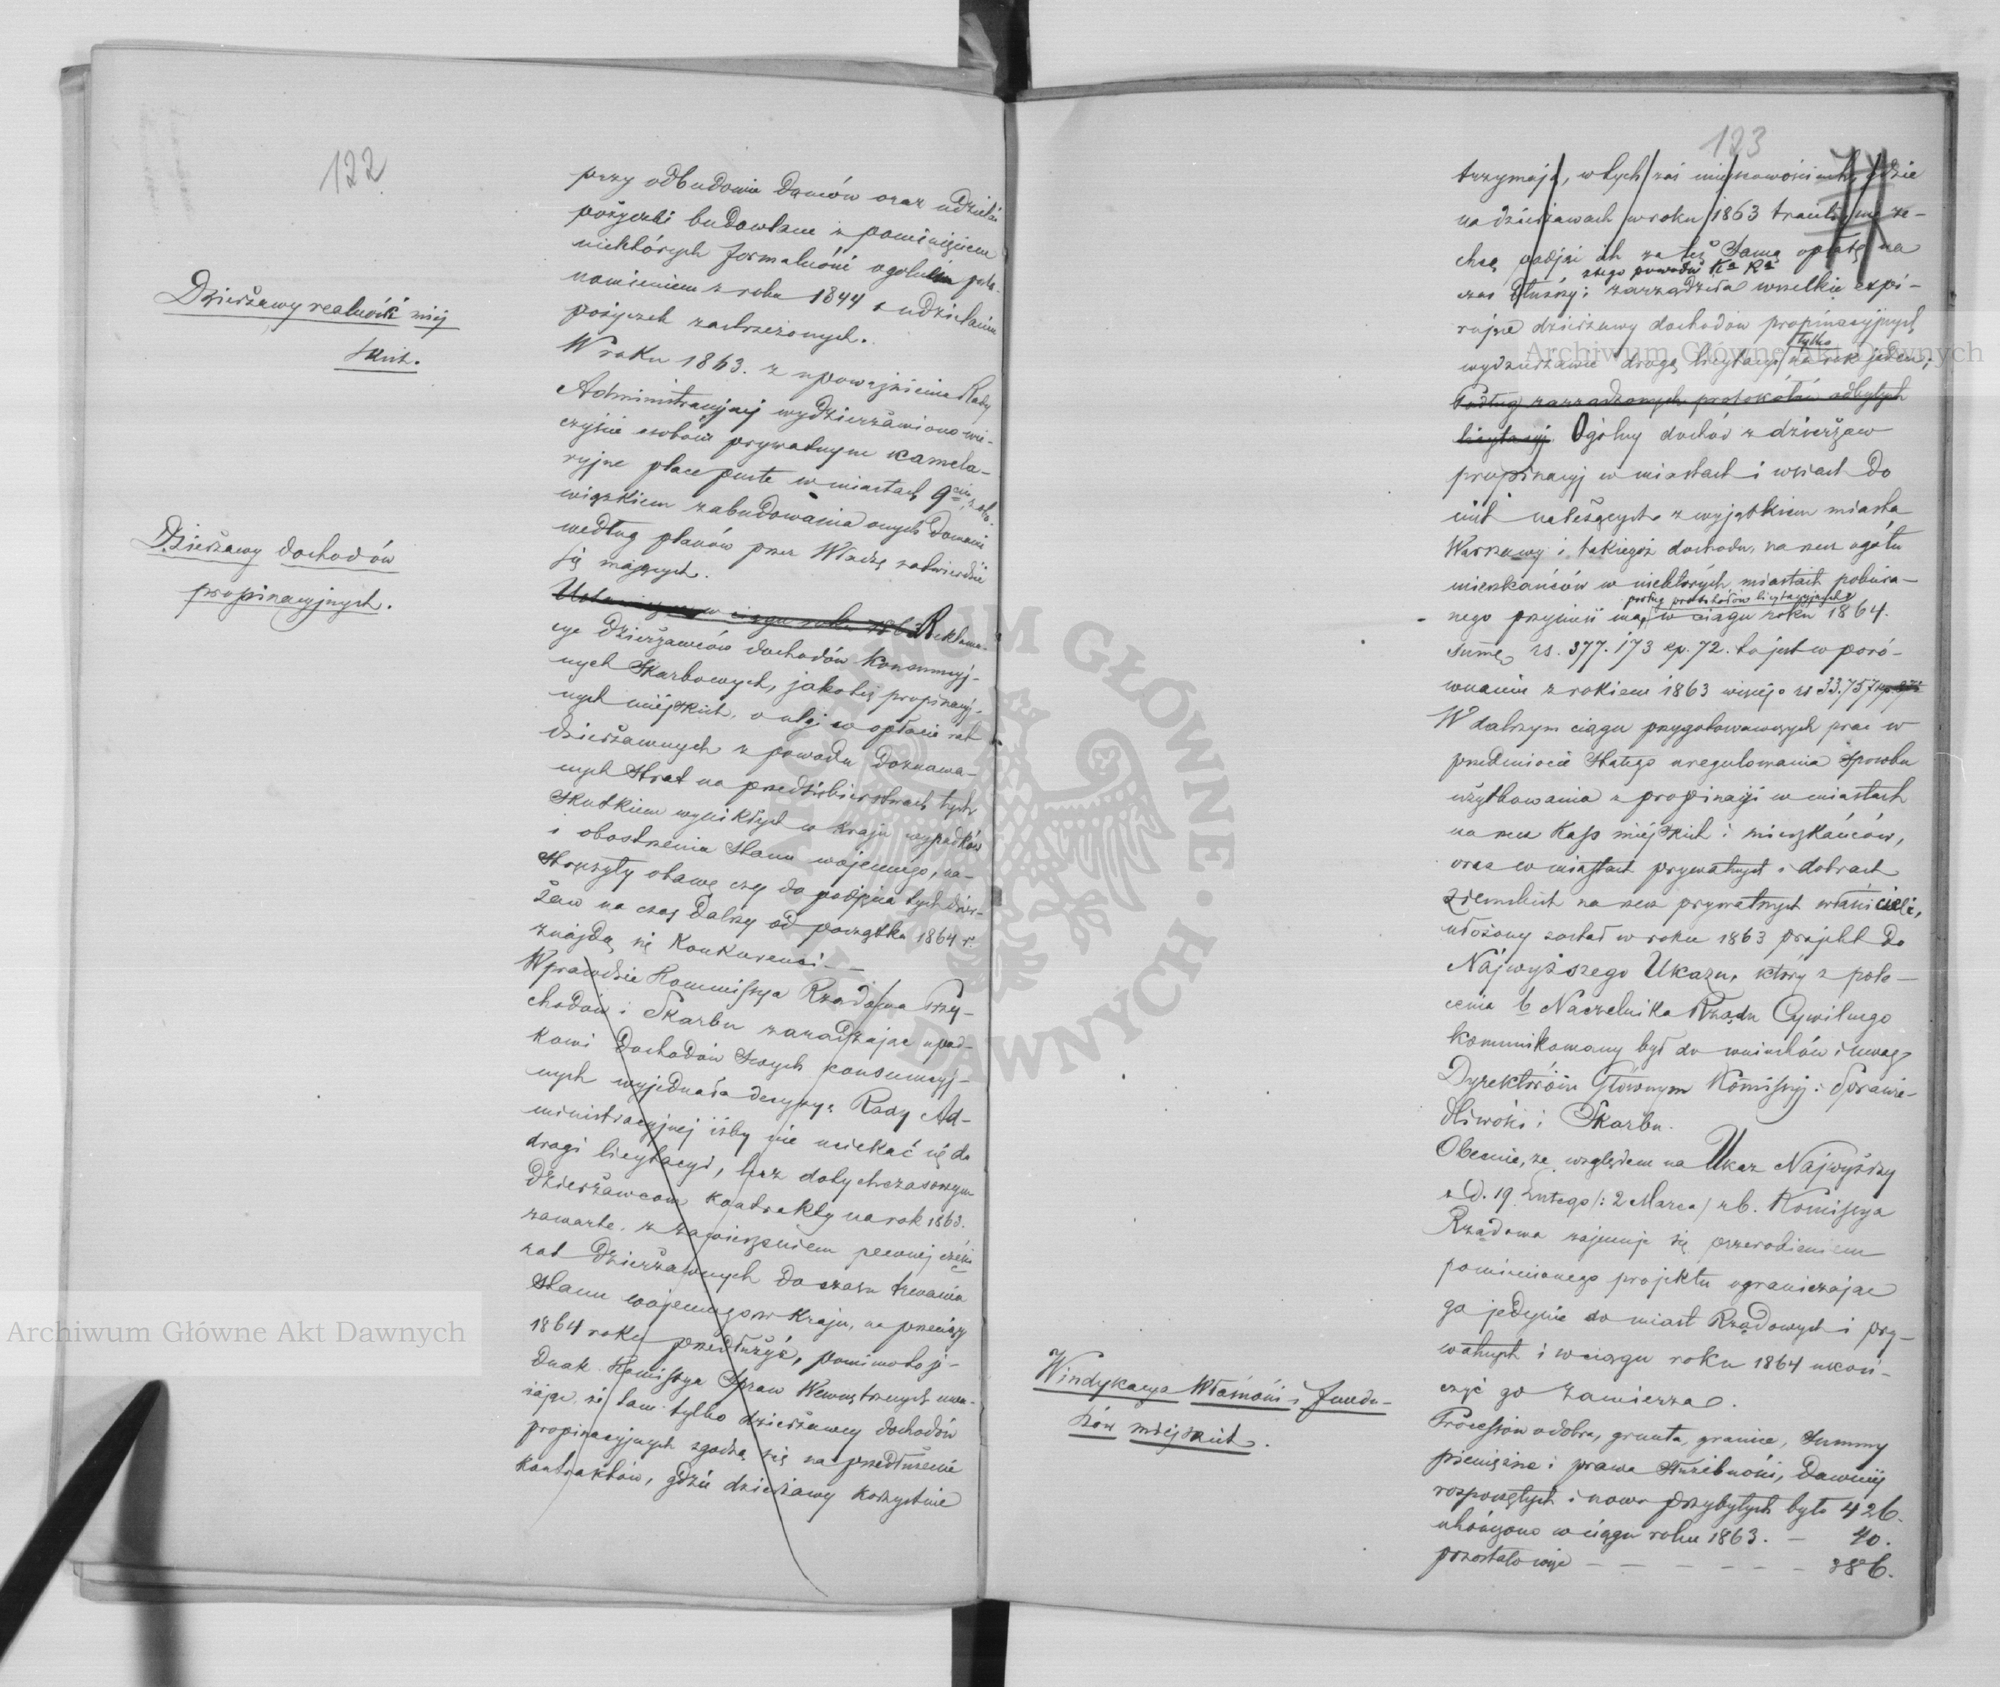 122
Dzierżawy realności miej
skich.
Dzierżawy dochodów
propinacyjnych.
przy odbudowie domów oraz udzielić
pożyczki budowlane z pominięciem
niektórych formalności ogólnem posta-
nowieniem z roku 1844 o udzielaniu
pożyczek zastrzeżonych.
W roku 1863. z upoważnienia Rady
Administracyjnej wydzierżawiono wie-
czyście osobom prywatnym kamela-
ryjne place puste w miastach 9ciu, z obo-
wiązkiem zabudowania onych domami
według planów przez Władzę zatwierdzić
się mających.
w ciągu roku 1863 Reklama-
cye dzierżawców dochodów konsumcyj-
nych Skarbowych, jakoteż propinacyj-
nych miejskich, o ulgi w opłacie rat
dzierżawnych z powodu doznawa-
nych strat na przedsiębierstwach tych
skutkiem wynikłych w kraju wypadków
i obostrzenia stanu wojennego, na-
stręczyły obawę czy do podjęcia tych dzier-
żaw na czas dalszy od początku 1864 r.
znajdą się konkurenci —
Wprawdzie Kommissya Rządowa Przy-
chodów i Skarbu zaradzając upad-
kowi dochodów swych konsumcyj-
nych wyjednała decyzyę Rady Ad-
ministracyjnej iżby nie uciekać się do
drogi licytacyi, lecz dotychczasowym
dzierżawcom kontrakty na rok 1863.
zawarte, z zawieszeniem pewnej części
rat dzierżawnych do czasu trwania
stanu wojennego w kraju, na przeciąg
1864 roku przedłużyć, pomimo to je-
dnak Komissya Spraw Wewnętrznych uwa-
żając, że tam tylko dzierżawcy dochodów
propinacyjnych zgodzą się na przedłużenie
kontraktów, gdzie dzierżawy korzystnie
123
trzymają, w tych zaś miejscowościach, gdzie
na dzierżawach w roku 1863 tracili, nie ze-
chcą podjąć ich za też samą opłatę na
z tego powodu Ka Ra
czas dłuższy; zarządziła wszelkie expi-
rujące dzierżawy dochodów propinacyjnych
tylko
wydzierżawić drogą licytacyi na rok jeden;
Podług zarządzonych protokółów odbytych
licytacyj Ogólny dochód z dzierżaw
propinacyj w miastach i wsiach do
nich należących z wyjątkiem miasta
Warszawy i takiegoż dochodu, na rzecz ogółu
mieszkańców w niektórych miastach pobiera-
podług protokółów licytacyjnych
nego przynieść ma, w ciągu roku 1864.
summę rs. 377.173 kp. 72. to jest w poró-
wnaniu z rokiem 1863 więcej o rs 33.757
W dalszym ciągu przygotowawczych prac w
przedmiocie stałego uregulowania sposobu
użytkowania z propinacji w miastach
na rzecz Kass miejskich i mieszkańców,
oraz w miastach prywatnych i dobrach
ziemskich na rzecz prywatnych właścicieli,
ułożony został w roku 1863 projekt do
Najwyższego Ukazu, który z pole-
cenia b Naczelnika Rządu Cywilnego
komunikowany był do wniosków i uwag
Dyrektorów Głównym Kommissyj: Sprawie-
dliwości i Skarbu.
Obecnie, ze względem na Ukaz Najwyższy
z d. 19 Lutego /: 2 Marca / r b. Komissya
Rządowa zajmuje się przerobieniem
pomienionego projektu ograniczając
go jedynie do miast Rządowych i pry-
watnych i w ciągu roku 1864 ukoń-
czyć go zamierza.
Windykacya Własności i fundu-
szów miejskich.
Processów o dobra, grunta, granice, summy
pieniężne i prawa służebności, dawniej
rozpoczętych i nowo przybyłych było 426.
ukończono w ciągu roku 1863. — 40.
pozostało więc — — — — — — 386.
Archiwum Główne Akt Dawnych
Archiwum Główne Akt Dawnych
ARCHIWUM GŁÓWNE AKT DAWNYCH